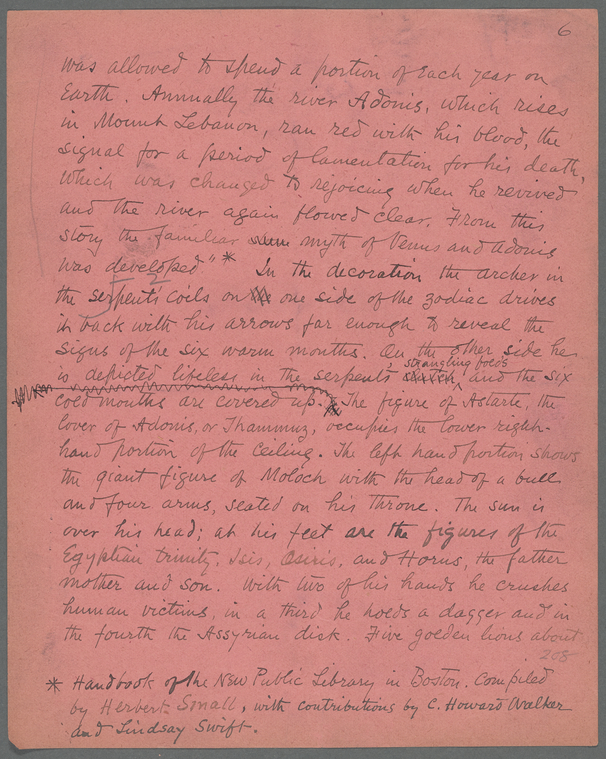 6
was allowed to spend a portion of each year on
Earth. Annually the river Adonis, which rises
in Mount Lebanon, ran red with his blood, the
signal for a period of lamentation for his death,
which was changed to rejoicing when he revived
and the river again flowed clear. From this
story the familiar myth of Venus and Adonis
was developed" * In the decoration the archer in
the serpent's coils on one side of the zodiac drives
it back with his arrows far enough to reveal the
signs of the six warm months. On the other side he
strangling folds
is depicted lifeless in the serpent's, and the six
cold months are covered up. The figure of Astarte, the
lover of Adonis, or Thammuz, occupies the lower right-
hand portion of the ceiling. The left hand portion shows
the giant figure of Moloch with the head of a bull
and four arms, seated on his throne. The sun is
over his head; at his feet are the figures of the
Egyptian trinity, Isis, Osiris, and Horus, the father
mother and son. With two of his hands he crushes
human victims, in a third he holds a dagger and in
the fourth the Assyrian disk. Five golden lions about
208
* Handbook of the New Public Library in Boston. Compiled
by Herbert Small, with contributions by C. Howard Walker
and Lindsay Swift.